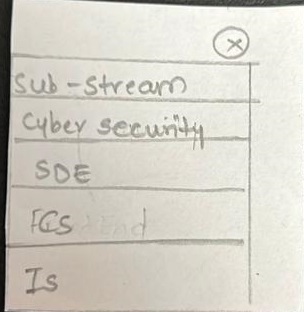 x
Sub-stream
Cyber security
SDE
FCS
Is